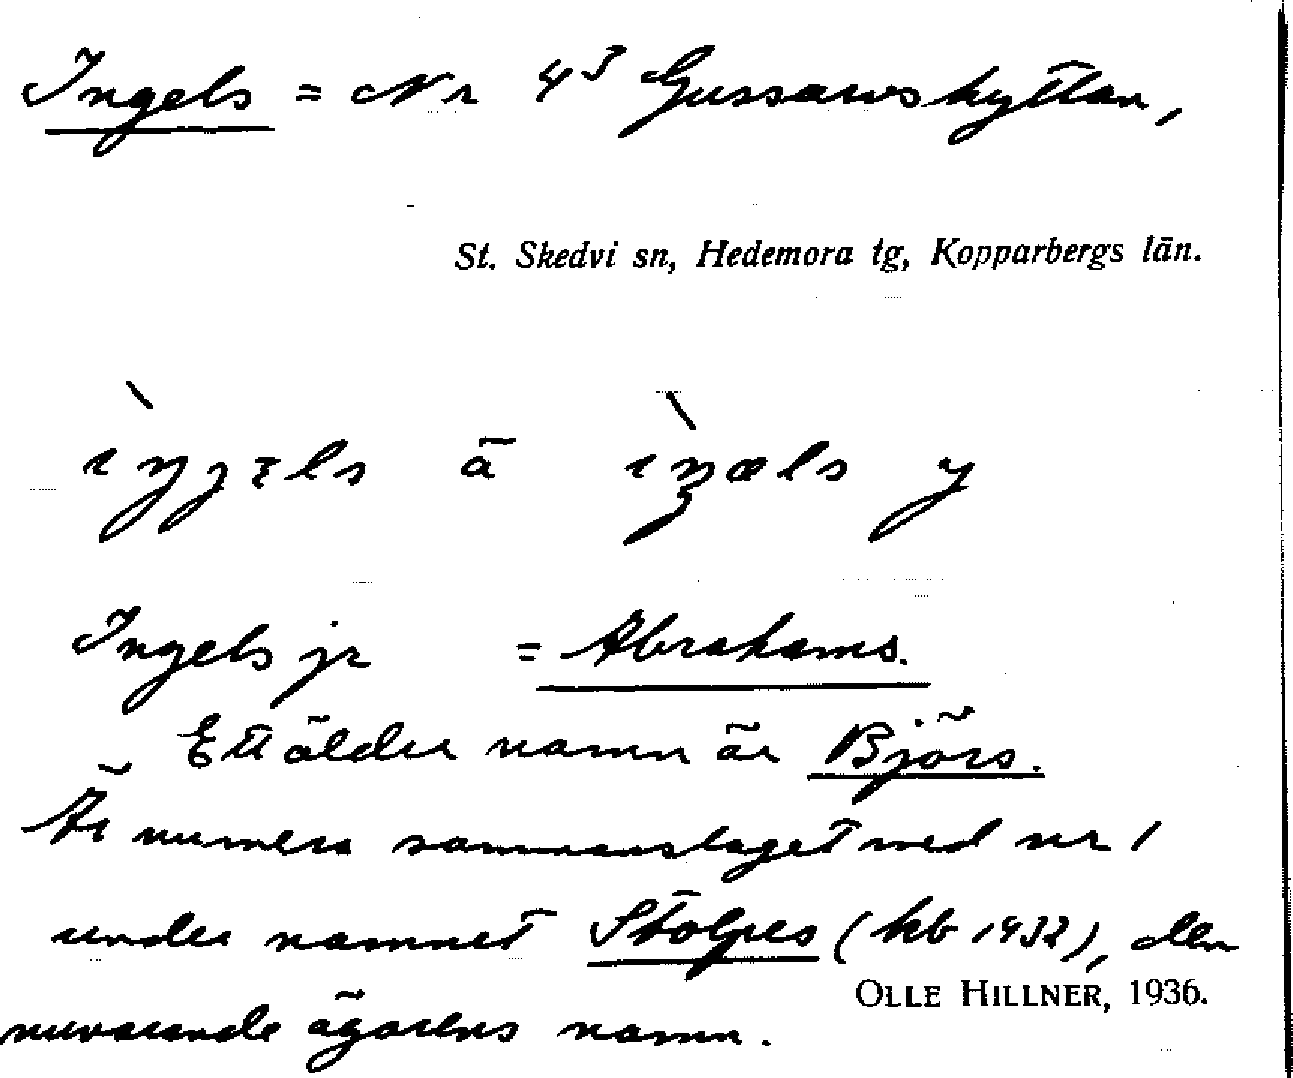 Ingels = Nr 4³ Gussarvshyttan,
St. Skedvi sn, Hedemora tg, Kopparbergs län.
ìŋgəls ä ìŋæls y
Ingels jr = Abrahams.
Ett äldre namn är Björs.
Är numera sammanslaget med nr 1
under namnet Stolpes (kb 1932), den
OLLE HILLNER, 1936.
nuvarande ägarens namn.